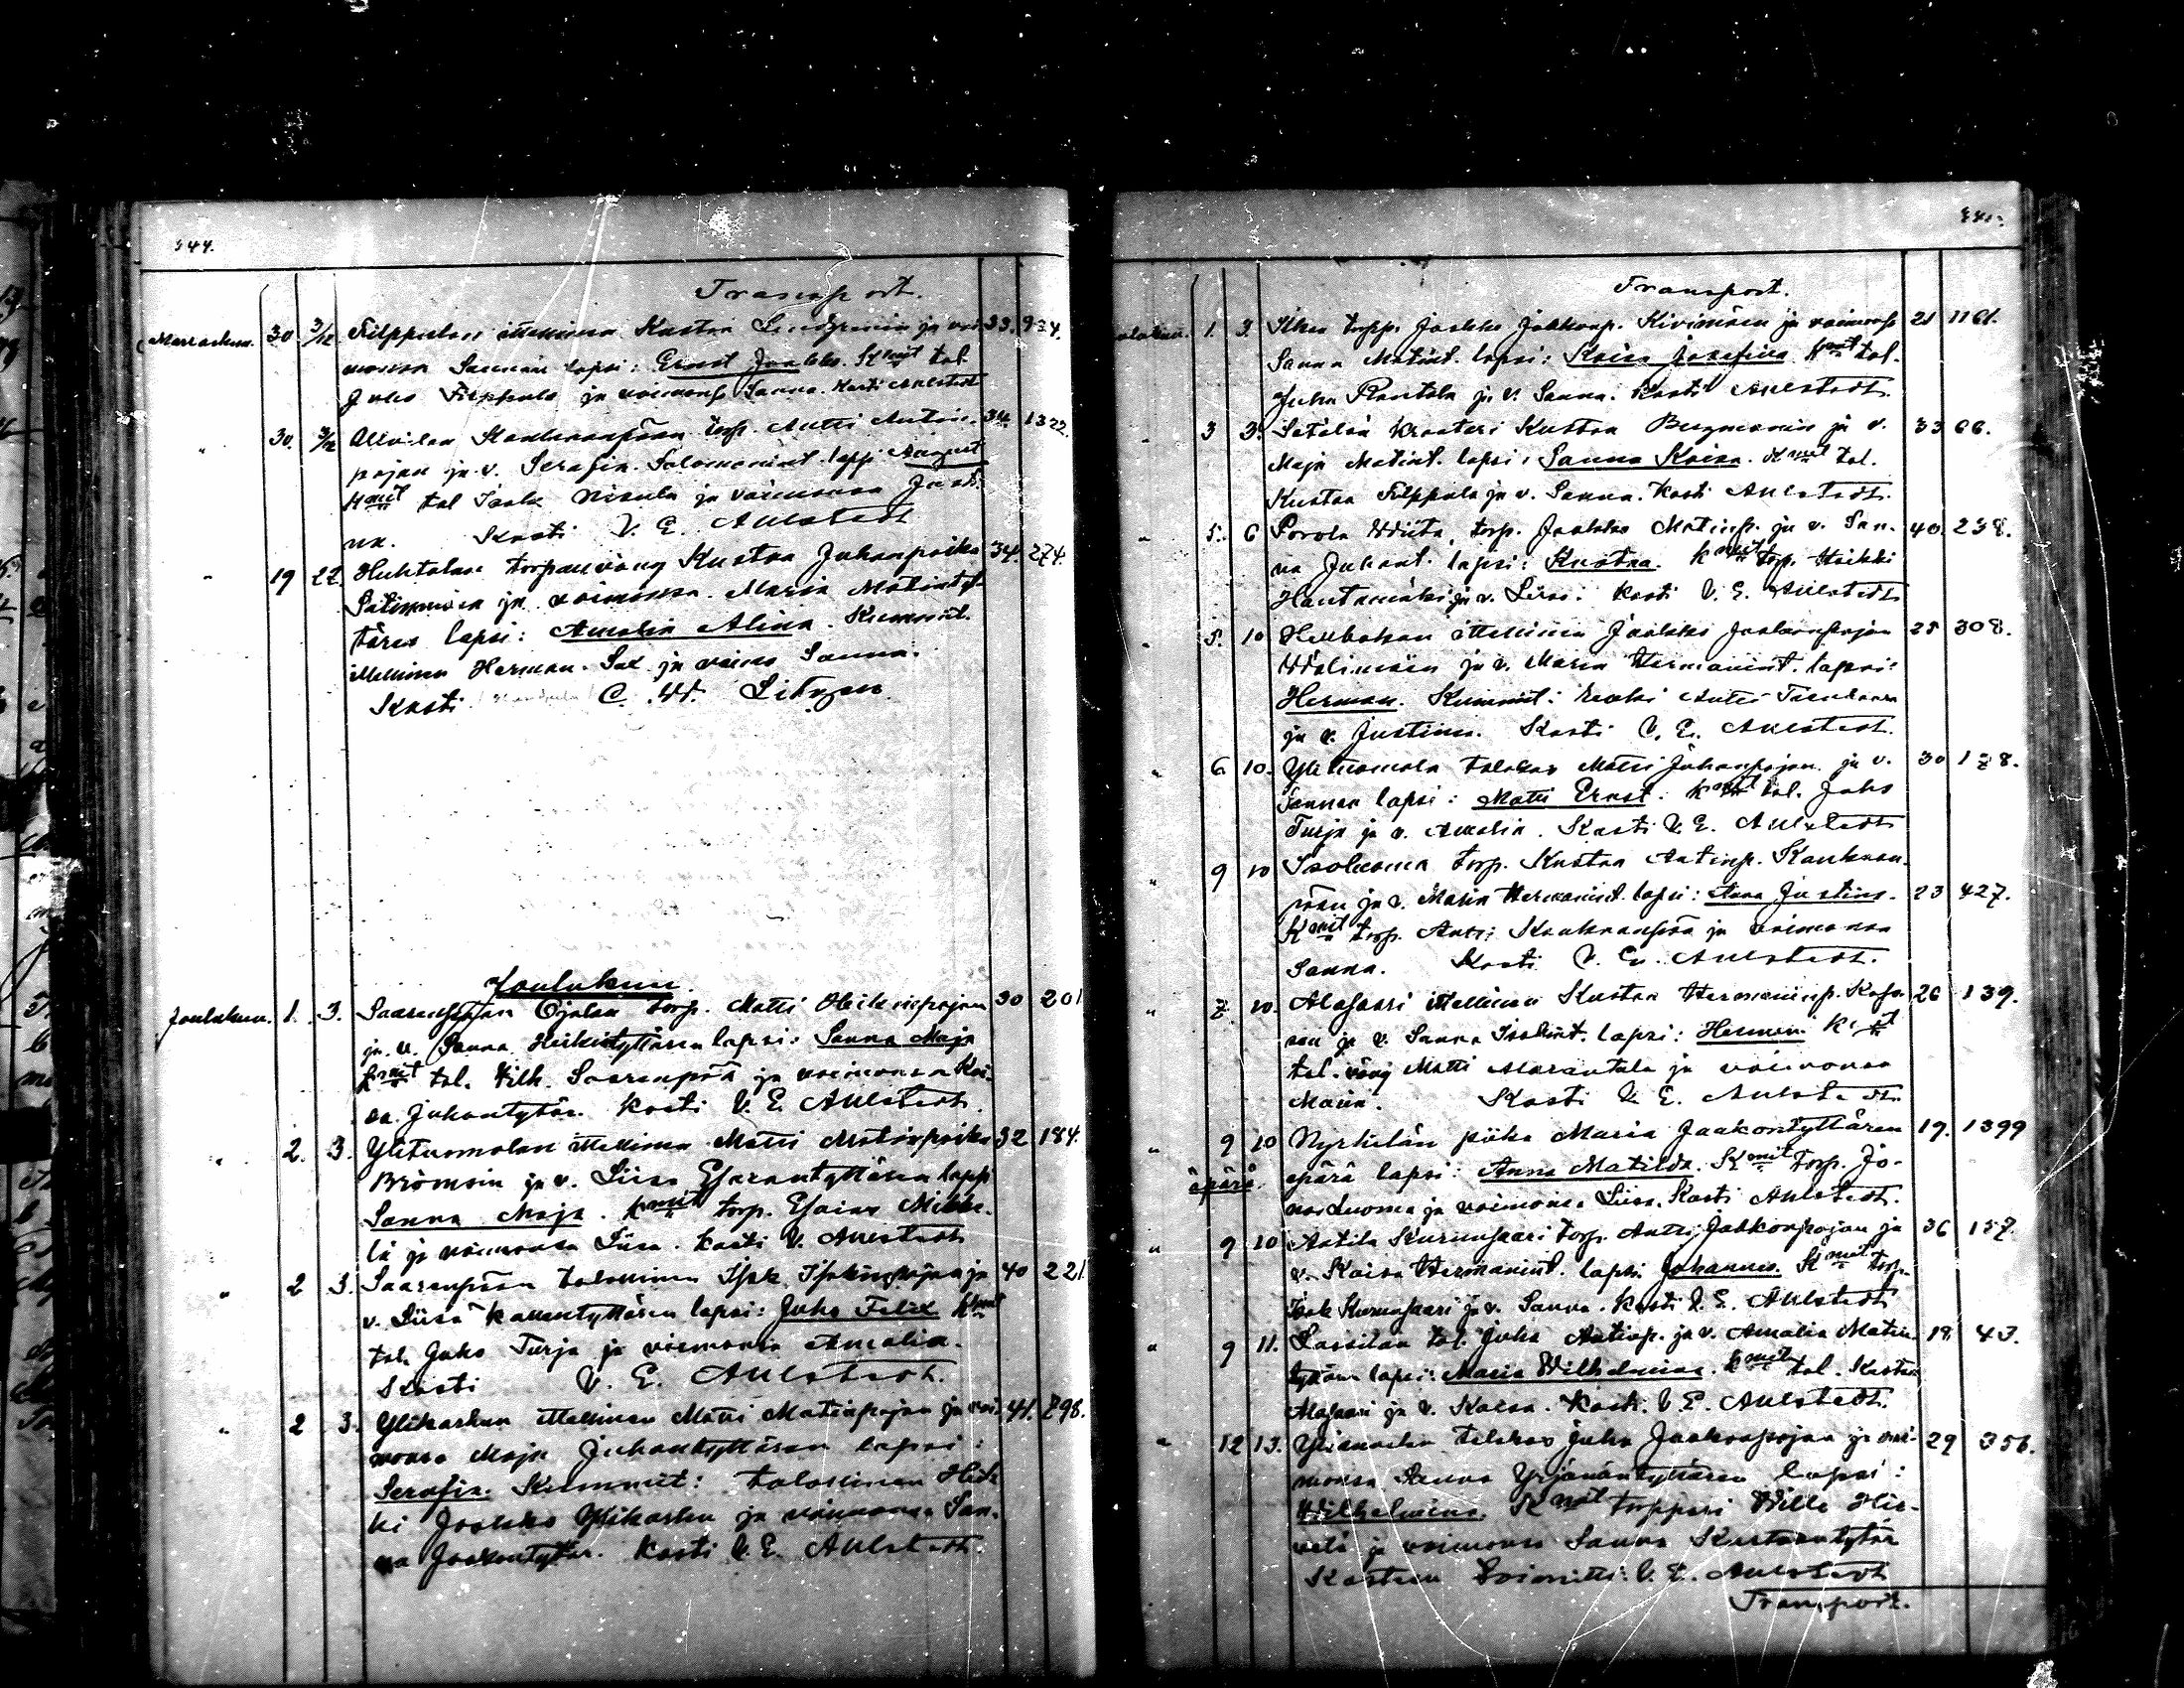 344.
Transport.
Marraskuu. 30 3/12 Filppulan itellinen Kustaa Lindgrenin ja vai- 33. 934.
monsa Sannan lapsi: Ernst Jaakko. Kmit tal.
Juho Filppula ja vaimonsa Sanna. Kasti Ahlstedt
" 30. 3/12 Allilan Kankaanpään torp. Antti Antin- 34 1322.
pojan ja v. Serafia Salomonint. lapsi August
Kmit tal Isak Nisula ja vaimonsa Justi-
na. Kasti V. E. Ahlstedt
" 19 22. Huhtalan torpanväng Kustaa Juhanpoika 34. 274.
ja vaimonsa Maria Matinty-
tären lapsi: Amalia Alina. Kummit.
itellinen Herman ja vaimo Sanna.
Kasti C. W. Litzen
Joulukuu.
Joulukuu. 1. 3. Saarenpään Ojalan torp. Matti Heikinpojan 30 201
ja v. Sanna Heikintyttären lapsi: Sanna Maja
Kmit tal. Vilh. Saarenpää ja vaimonsa Kai-
sa Juhantytär. Kasti V. E. Ahlstedt.
" 2. 3. Ylituomolan itellinen Matti Matinpoika 32 184.
ja v. Liisa Esarantyttären lapsi
Sanna Maja. Kmit torp. Esaias Mikki-
lä ja vaimonsa Liisa. Kasti V. Ahlstedt
" 2 3. Saarenpään talollinen Isak Isakinpojan ja 40 221
v. Liisa lapsi: Juho Felix Kmit
tal. Juho Turja ja vaimonsa Amalia.
Kasti V. E. Ahlstedt.
" 2 3. Ylikosken itellinen Matti Matinpojan ja vai- 41. 298.
monsa Maja Juhantyttären lapsi:
Serafia. Kummit: talollinen Heik-
ki Jaakko ja vaimonsa San-
na Jaakontytär. Kasti V. E. Ahlstedt.
Transport.
1. 3. torpp. Jaakko Jaakonp. Kivimäen ja vaimonsa 21 1161.
Sanna Matint. lapsi: Kaisa Josefina Kmit tal.
Juha Rantala ja v. Sanna. Kasti Ahlstedt.
" 3 3. Setälän kraatari Kustaa Bergmanin ja v. 33 66.
Maja Matint. lapsi: Sanna Kaisa. Kmit tal.
Kustaa Filppula ja v. Sanna. Kasti Ahlstedt.
" 5. 6 Porola Wiita, torp. Jaakko Matinp. ja v. San- 40. 238.
na Juhant. lapsi: Kustaa. Kmit torp. Heikki
Hautamäki ja v. Liisa. Kasti V. E. Ahlstedt
" 5. 10 itellinen Jaakko Jaakonpojan 25 308.
Wälimäen ja v. Maria Hermanint. lapsi:
Herman. Kummit: Antti
ja v. Justina. Kasti V. E. Ahlstedt.
" 6. 10. Ylituomola talokas Matti Juhanpojan ja v. 30 178.
Sannan lapsi: Matti Ernst. Kmit tal. Juho
Turja ja v. Amalia. Kasti V. E. Ahlstedt
" 9 10 Isoluoma torp. Kustaa Antinp. Kankaan-
pään ja v. Maria Hermanint. lapsi: Anna Justina. 23 427.
Kmit torp. Antti Kankaanpää ja vaimonsa
Sanna. Kasti V. E. Ahlstedt.
" 7. 10. Alasaari itellinen Kustaa Hermaninp. 26 139.
ja v. Sanna Isakint. lapsi: Herman Kmit
tal. väng Matti Alarantala ja vaimonsa
Maria. Kasti V. E. Ahlstedt.
" 9 10 Nyrhilän piika Maria Jaakontyttären 19. 1399
äpärä. äpärä lapsi: Anna Matilda. Kmit torp. Jo-
nas Luoma ja vaimonsa Liisa. Kasti Ahlstedt.
" 9 10 Antila Kurunsaari torp. Antti Jaakonpojan ja 36 157.
v. Kaisa Hermanint. lapsi Johannes. Kmit torp.
Isak Kurunsaari ja v. Sanna. Kasti V. E. Ahlstedt
" 9 11. Lassilan tal. Juha Antinp. ja v. Amalia Matin- 18 43.
tyttären lapsi: Maria Wilhelmina. Kmit tal. Kustaa
Alasaari ja v. Kaisa. Kasti V. E. Ahlstedt.
" 12 13. talokas Juho Jaakonpojan ja vai- 29 356.
monsa Sanna Yrjänäntyttären lapsi:
Wilhelmina. Kmit torppari Wille Hir-
velä ja vaimonsa Sanna Kustaantytär
Kasteen toimitti: V. E. Ahlstedt
Transport.